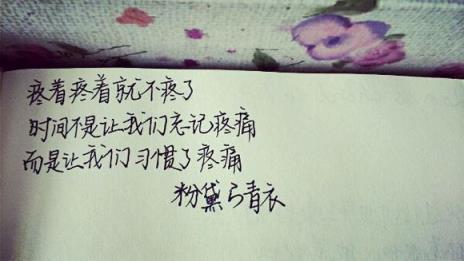 疼着疼着就不疼了
时间不是让我们忘记疼痛
而是让我们习惯了疼痛
粉黛弓青衣